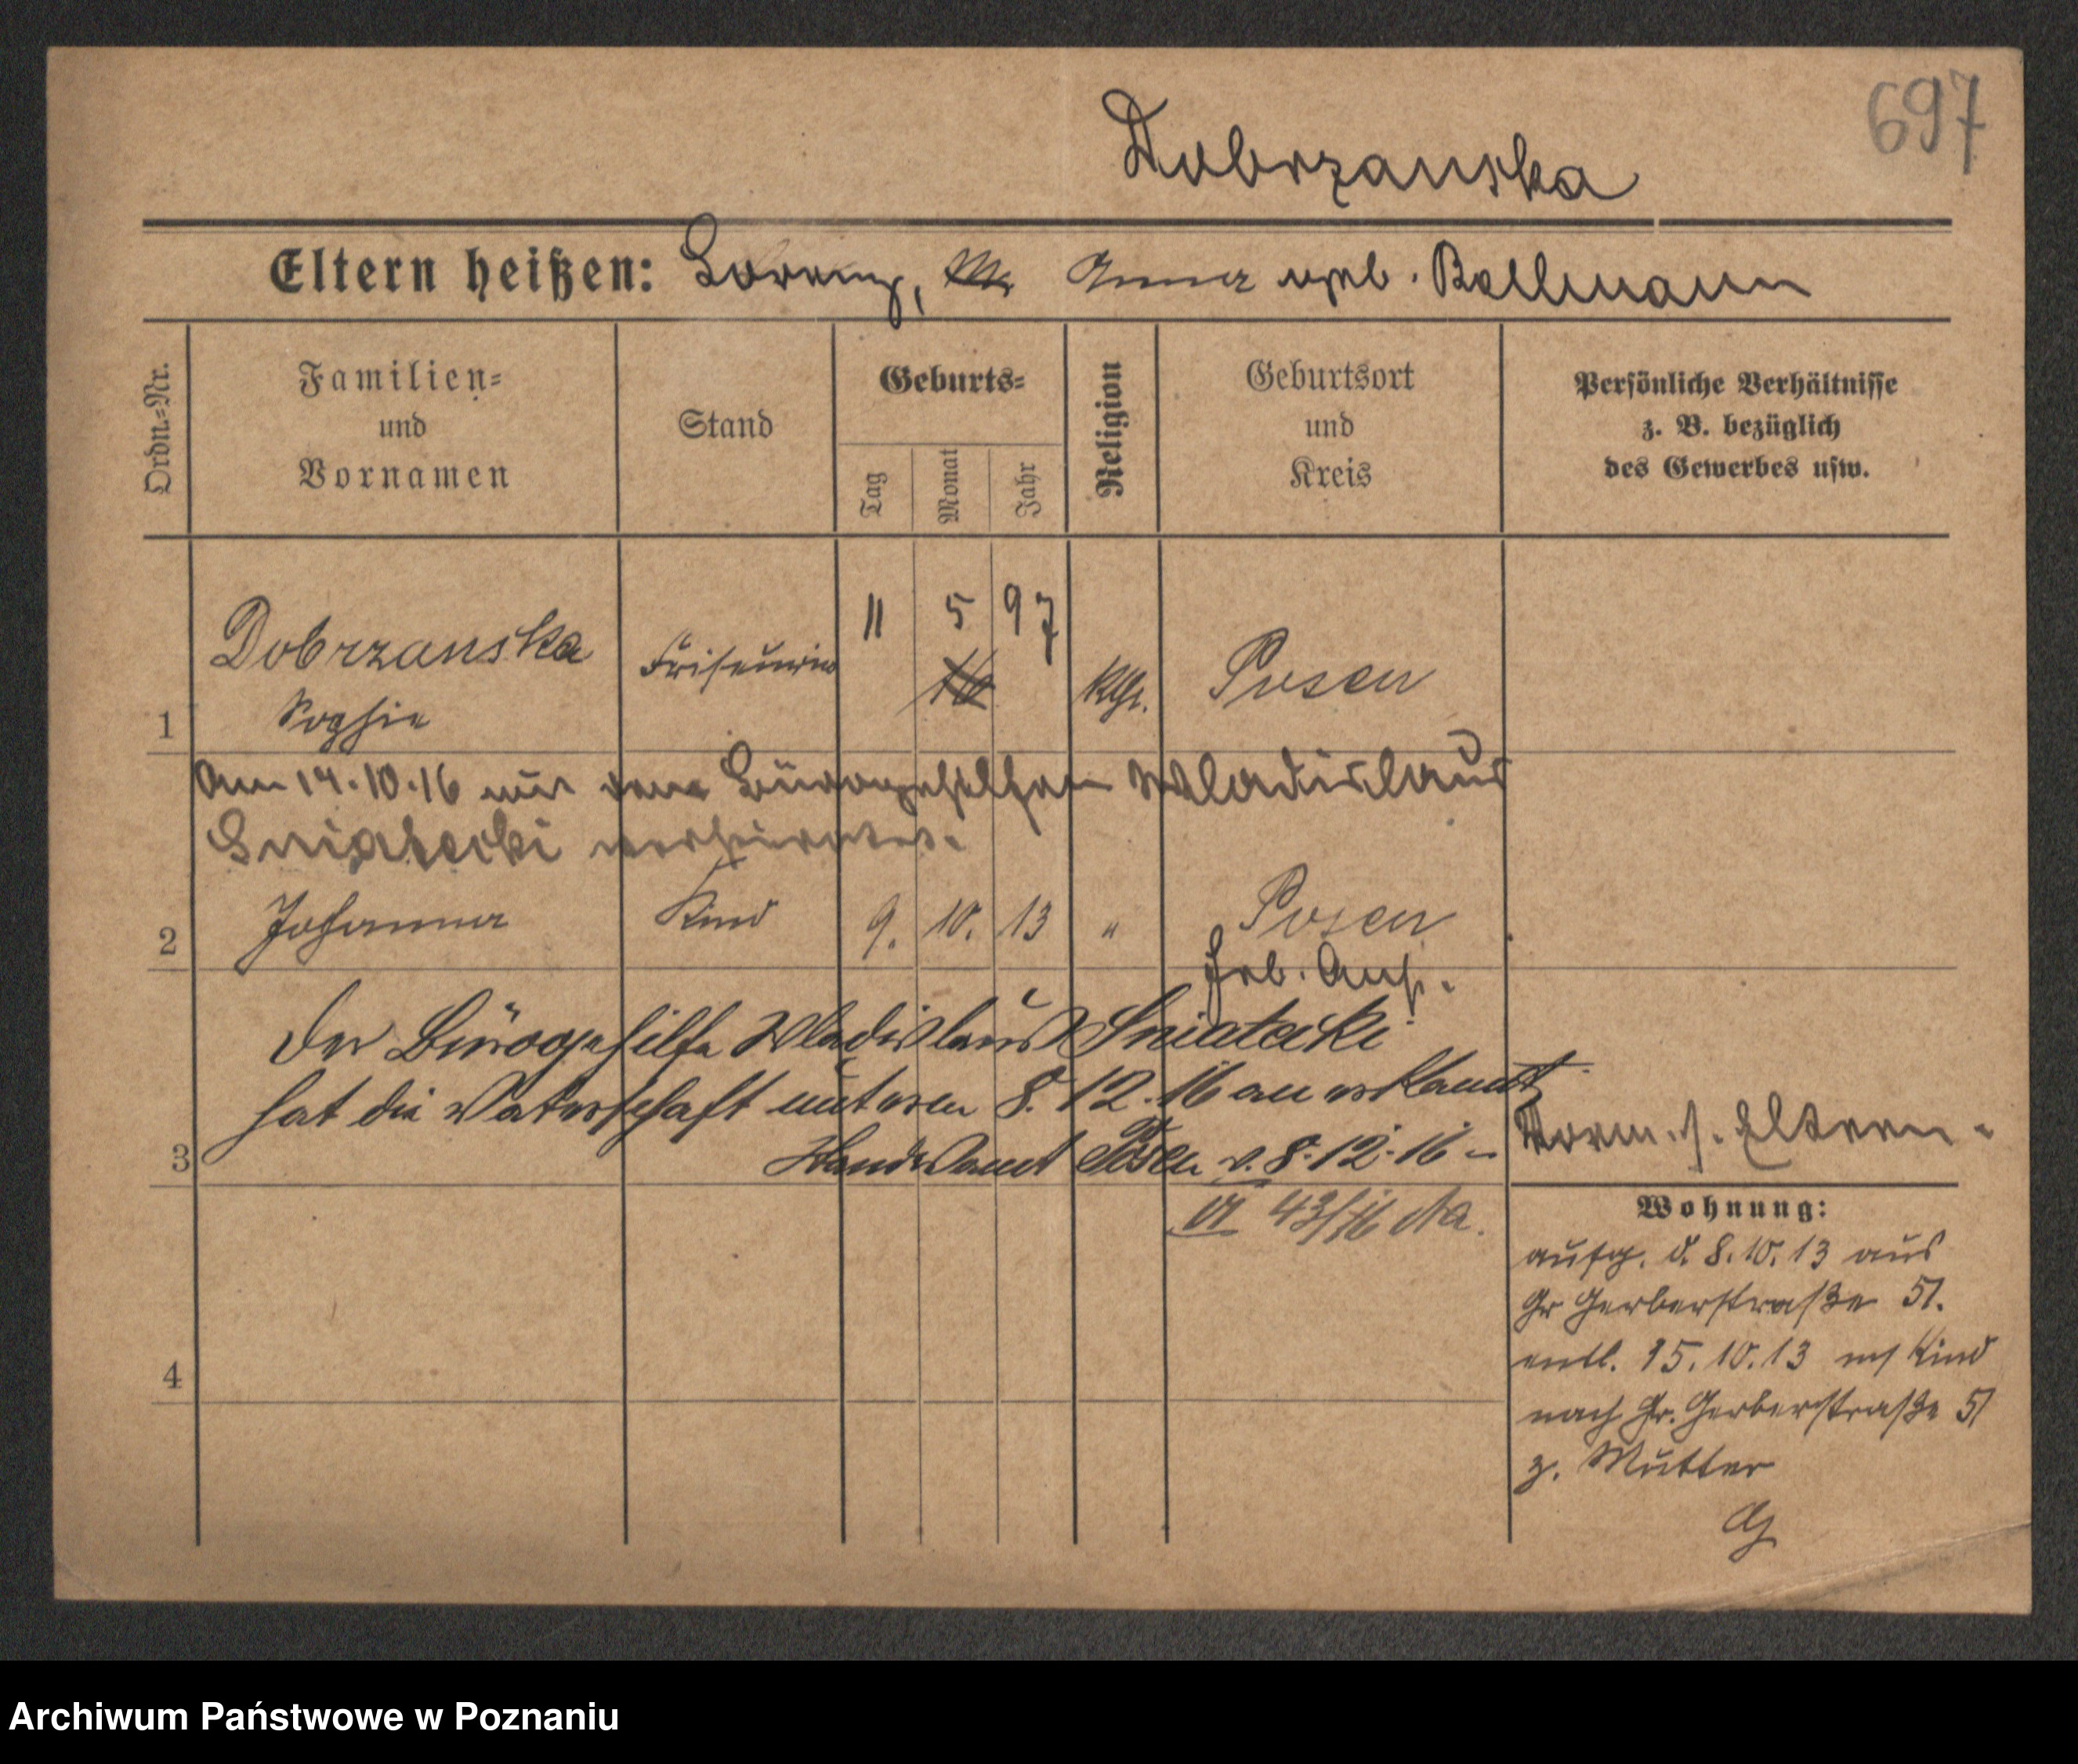 697
Dobrzanska
Eltern heißen: Lorenz, Anna geb. Bollmann
Ordn.-Nr.
Familien-
und
Vornamen
Stand
Geburts-
Tag
Monat
Jahr
Religion
Geburtsort
und
Kreis
Persönliche Verhältnisse
z. B. bezüglich
des Gewerbes usw.
1
Dobrzanska
Sophie
Friseurin
11 5 97
10
kth.
Posen
Am 14.10.16 mit dem Bürogehilfen Wladislaus
Sniatecki verheiratet.
2
Johanna
Kind
9. 10. 13
"
Posen
Geb. Anst.
Der Bürogehilfe Wladislaus Sniatecki
hat die Vaterschaft unterm 8.12.16 anerkannt
3
Standesamt Posen v. 8.12.16
VI 43/16
Vorm. s. Eltern.
Wohnung:
aufg. d. 8.10.13 aus
Gr Gerberstraße 51.
entl. 15.10.13 m/ Kind
nach Gr. Gerberstraße 51
z. Mutter
4
Archiwum Państwowe w Poznaniu